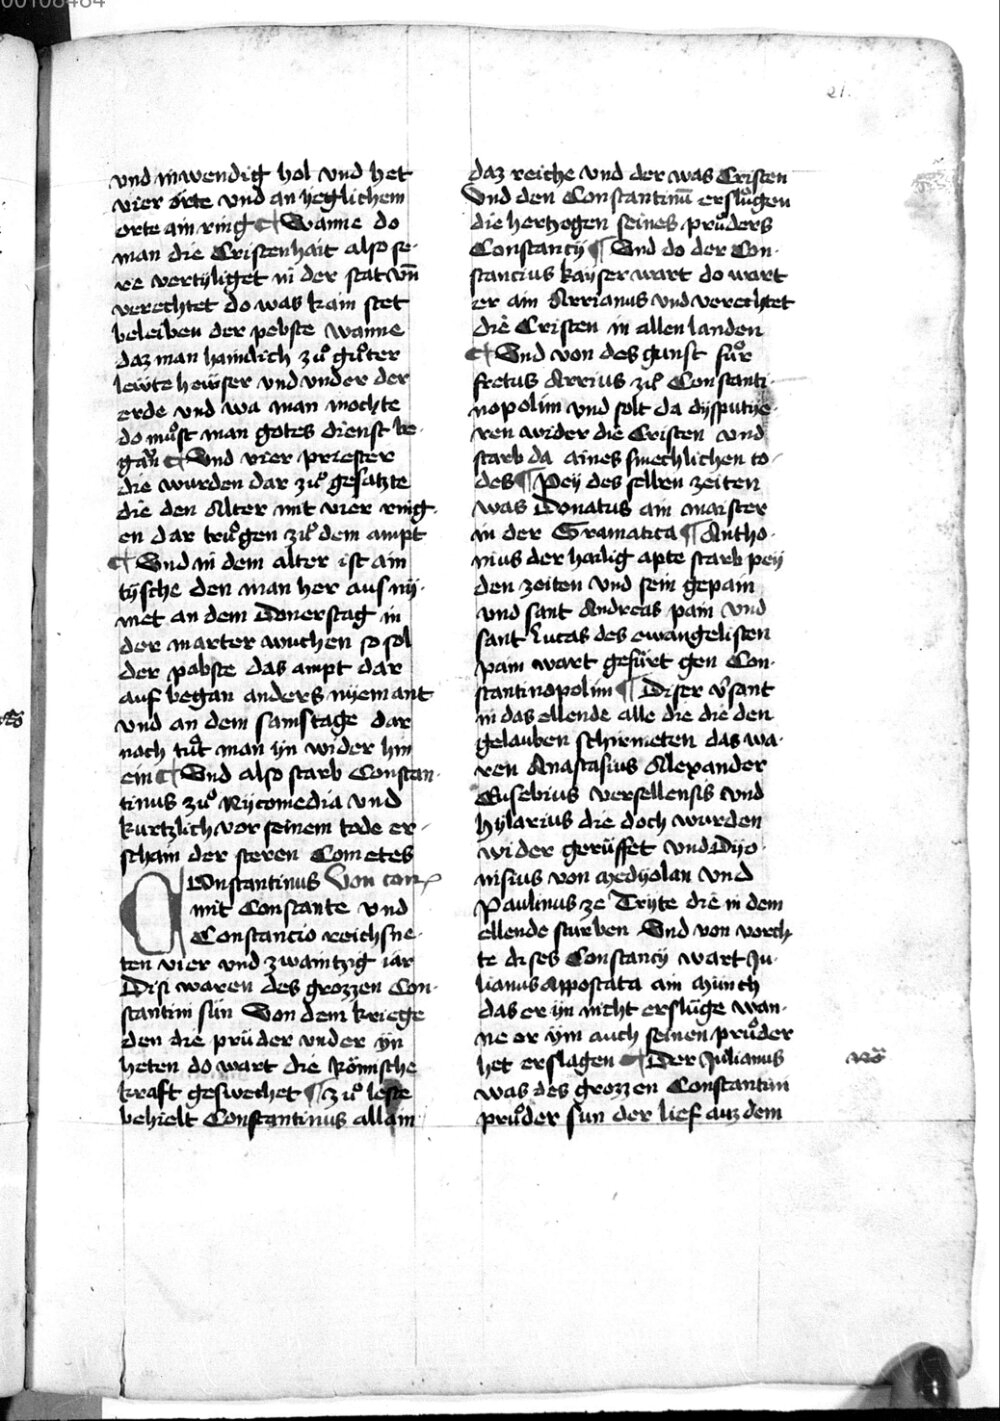 00108484
21.
und inwendig hol und het
vier orte und an yeglichem
orte ain ring ¶ Wanne do
man die Cristenhait also se-
re vertyliget in der stat vn̄
verechtet do was kain stet
beleiben der pebste wanne
daz man haimlich zuͦ guͦter
lewte hewser und under der
erde und wa man mochte
do muͦst man gotes dienst be-
gan ¶ Und vier priester
die wurden dar zuͦ gesatzte
die den Alter mit vier ring-
en dar truͦgen zuͦ dem ampt
¶ Und in dem alter ist ain
tysche den man her aus ny-
met an dem Donerstag in
der marter wuchen so sol
der pabste das ampt dar
auf began anders nyemant
und an dem samstage dar
nach tuͦt man yn wider hin
ein ¶ Und also starb Constan-
tinus zuͦ Nycomedia und
kurtzlich vor seinem tode er-
schain der steren Cometes
Constantinus Von
mit Constante und
Constancio reichsne-
ten vier und zwaintzig iar
Disi waren des grozzen Con-
stantini sün Von dem kriege
den die prüder under yn
heten do wart die Römische
kraft geswechet ¶ Zuͦ leste
behielt Constantinus allain
daz reiche und der was Cristen
Und den Constantinū ersluͦgen
die hertzogen seines pruͦders
Constancij ¶ Und do der Con-
stancius kayser wart do wart
er ain Arrianus und verechtet
die Cristen in allen landen
¶ Und von des gunst fuͦr
fretus Arrius zuͦ Constanti-
nopolim und solt da dysputye-
ren wider die Cristen und
starb da aines smechlichen to-
des ¶ Pey des selben zeiten
was Donatus ain maister
in der Gramatica ¶ Antho-
nius der hailig apte starb pey
den zeiten und sein gepain
und sant Andreas pain und
sant Lucas des ewangelisten
pain wart gefürt gen Con-
stantinopolim ¶ Diser v͛sant
in das ellende alle die die den
gelauben schirmeten das wa-
ren Anastasius Alexander
Eusebius versellensis und
hylarius die doch wurden
wider gerüffet und Dyo-
nisius von Medyolan und
Paulinus ze Tryte die in dem
ellende sturben Und von vorch-
te dises Constancij wart Ju-
lianus Appostata ain münch
das er yn nicht erslüge wan-
ne er ym auch seinen pruͦder
het erslagen ¶ Der Julianus
was des grozzen Constantini
pruͦder sun der lief auz dem